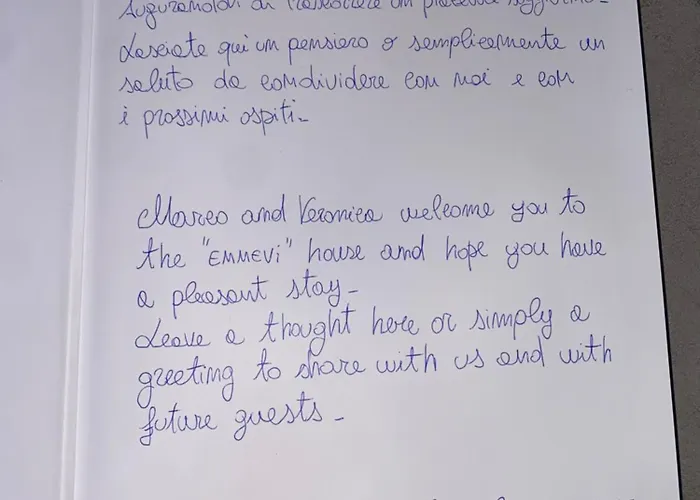 Augurandovi di trascorrere un piacevole soggiorno_
Lasciate qui un pensiero o semplicemente un
saluto da condividere con noi e con
i prossimi ospiti_
Marco and Veronica welcome you to
the "EMMEVI" house and hope you have
a pleasant stay_
Leave a thought here or simply a
greeting to share with us and with
future guests_